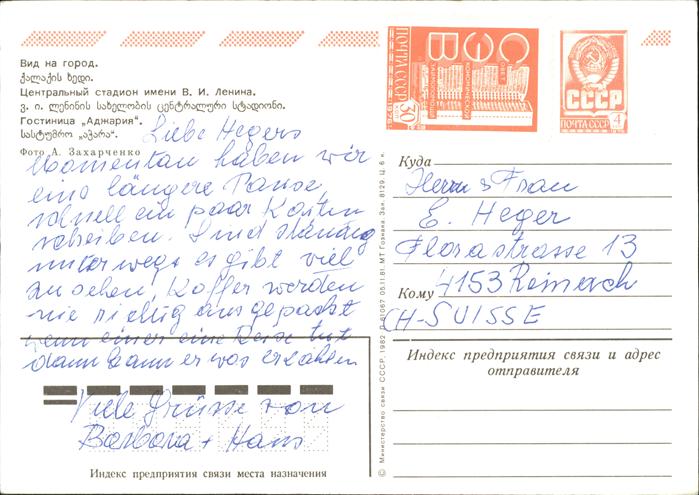 Вид на город.
ქალაქის ხედი.
Центральный стадион имени В. И. Ленина.
ვ. ი. ლენინის სახელობის ცენტრალური სტადიონი.
Гостиница „Аджария“.
სასტუმრო „აჭარა“.
Фото А. Захарченко
Liebe Hegers
Momentan haben wir
eine längere Pause,
schnell ein paar Karten
schreiben. Sind ständig
unterwegs es gibt viel
zu sehen Koffer werden
nie richtig ausgepackt
wenn einer eine Reise tut
dann kann er was erzählen
Viele Grüsse von
Barbara + Hans
Индекс предприятия связи места назначения
© Министерство связи СССР. 1982
05.11.81. МТ Гознака. Зак. 8129. Ц. 6 к.
ПОЧТА СССР
СЭВ
СОВЕТ
ЭКОНОМИЧЕСКОЙ
ВЗАИМОПОМОЩИ
30
СССР
ПОЧТА СССР
4
Куда
Herrn + Frau
E. Heger
Florastrasse 13
Кому
4153 Reinach
CH-SUISSE
Индекс предприятия связи и адрес
отправителя